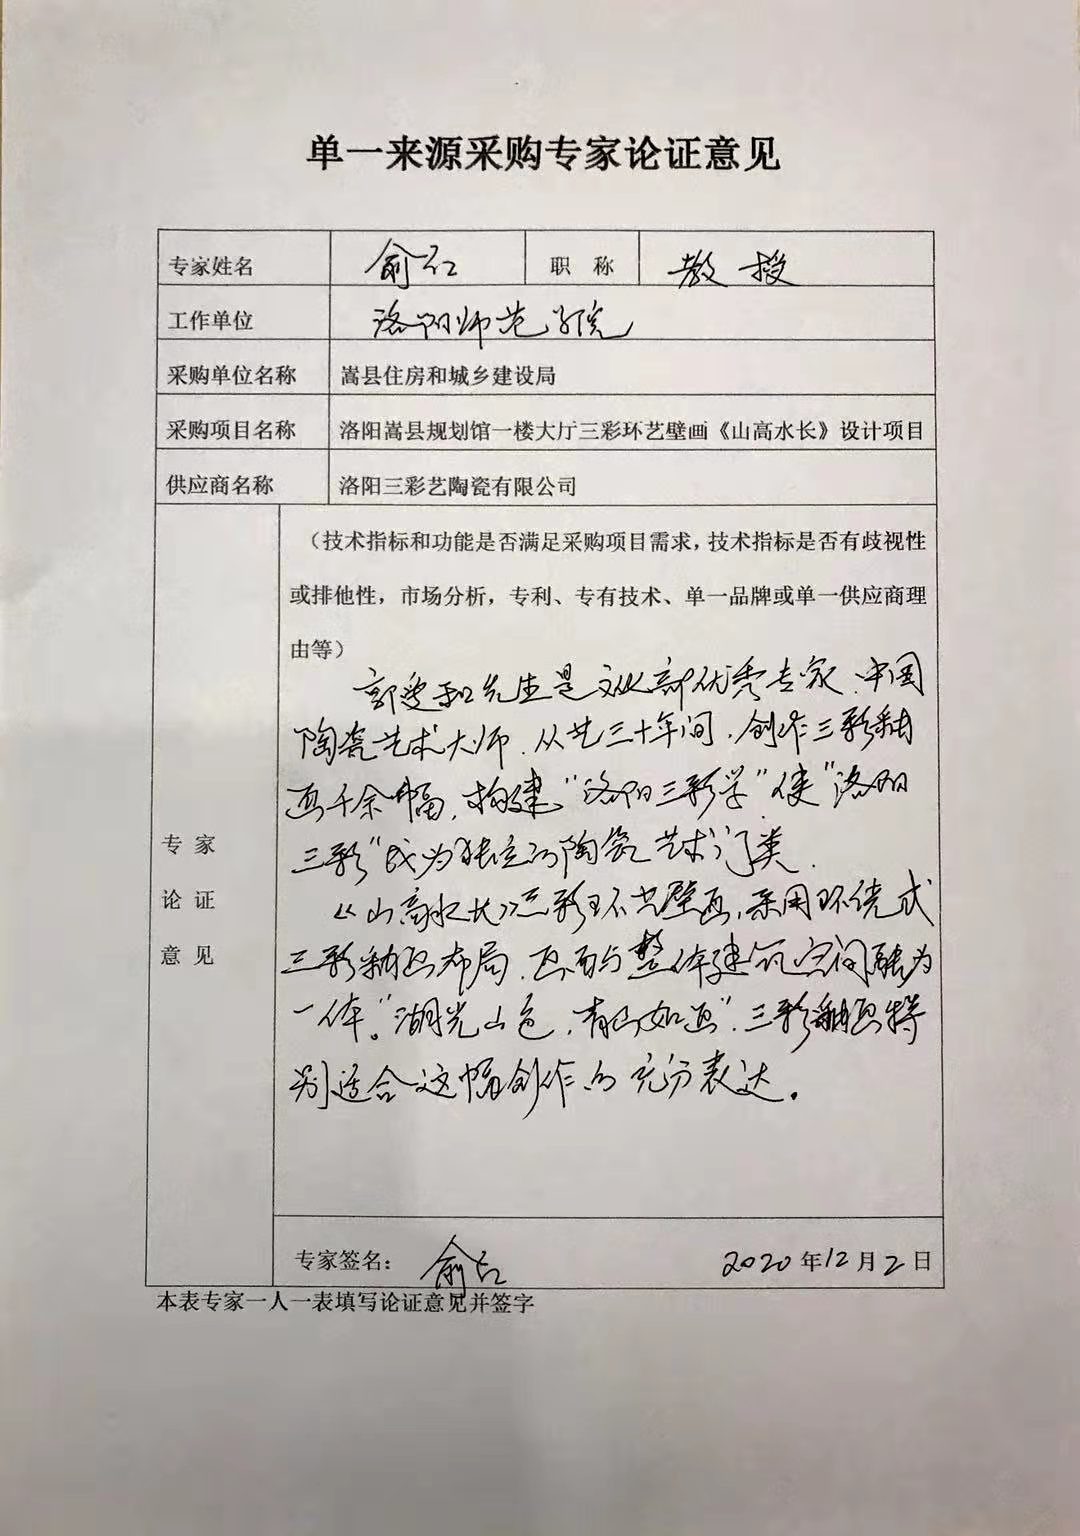 单一来源采购专家论证意见
专家姓名 俞红 职 称 教授
工作单位 洛阳师范学院
采购单位名称 嵩县住房和城乡建设局
采购项目名称 洛阳嵩县规划馆一楼大厅三彩环艺壁画《山高水长》设计项目
供应商名称 洛阳三彩艺陶瓷有限公司
（技术指标和功能是否满足采购项目需求，技术指标是否有歧视性
或排他性，市场分析，专利、专有技术、单一品牌或单一供应商理
由等）
郭爱和先生是文化部优秀专家、中国
陶瓷艺术大师．从艺三十年间，创作三彩釉
画千余幅，构建“洛阳三彩学”使“洛阳
三彩”成为独立的陶瓷艺术门类．
《山高水长》三彩环艺壁画，采用环绕式
三彩釉画布局，画面与整体建筑空间融为
一体。“湖光山色，青山如画”，三彩釉画特
别适合这幅创作的充分表达。
专家
论证
意见
专家签名： 俞红 2020年12月2日
本表专家一人一表填写论证意见并签字